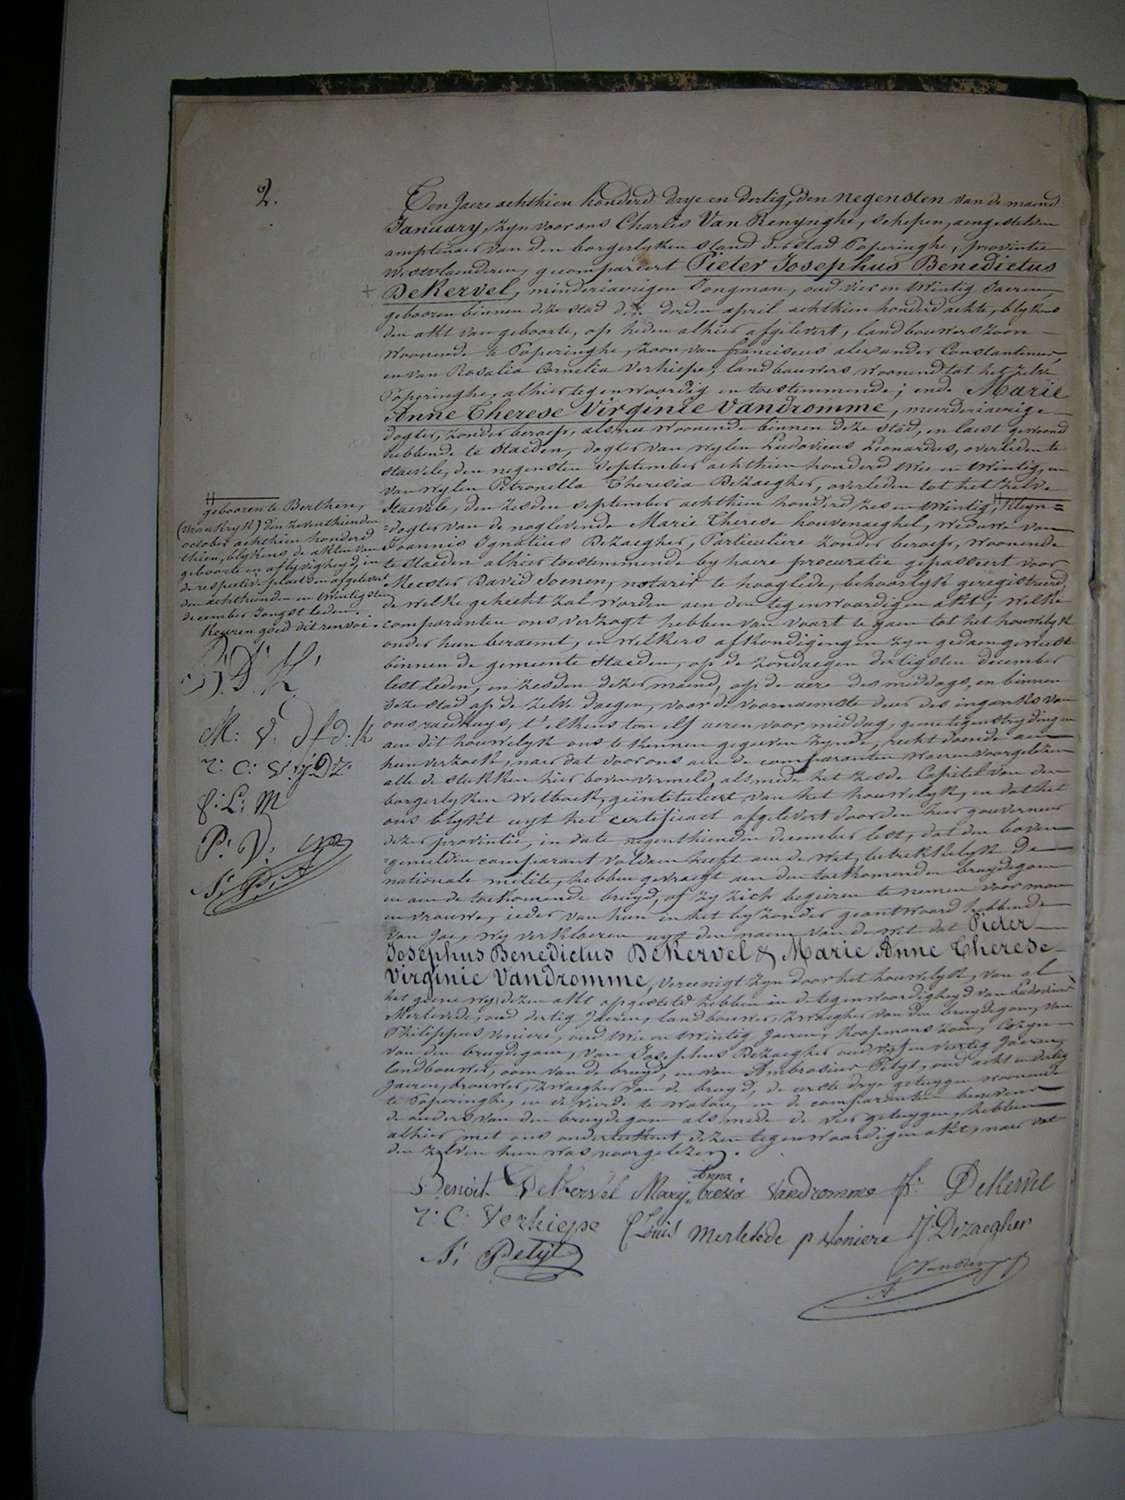 2.
Ten Jaere achthien honderd drye en dertig, den negensten van de maend
January, zyn voor ons Charles Van Renynghe, schepen, aengestelden
amptenaer van den borgerlyken stand der stad Poperinghe, provintie
Westvlaenderen, gecompareert Pieter Josephus Benedictus
DeKervel, minderjaerigen Jongman, oud vier en twintig Jaeren,
gebooren binnen deze stad den derden april achthien honderd achte, blykens
den akt van geboorte, op heden alhier afgelevert, landbouwers zoon
woonende te Poperinghe, zoon van franciscus alexander Constantinus,
en van Rosalia Cornelia Verhiepe, landbouwers woonend tot het zelve
Poperinghe, alhier tegenwoordig en toestemmende; ende Marie
Anne Therese Virginie Vandromme, meerderjaerige
dogter, zonder beroep, alsnu woonende binnen deze stad, en laest gewoond
hebbende te Staeden, dogter van wylen Ludovicus Leonardus, overleden te
Stavele, den negensten september achthien honderd twee en twintig, en
van wylen Petronella Theresia Dezaegher, overleden tot het zelve
Stavele, den zesden september achthien honderd zes en twintig, kleyn=
=dogter van de noglevende Marie Therese houvenaeghel, weduwe van
Joannis Ignatius Dezaegher, Particuliere zonder beroep, woonende
te Staeden alhier toestemmende by haere procuratie gepasseert voor
Meester David Soenen, notaris te hooglede, behoorlyk geregistreerd,
de welke gehecht zal worden aen den tegenwoordigen akt; welke
comparanten ons verzogt hebben van voort te gaen tot het houwelyk
onder hun beraemt, en welkers afkondigingen zyn gedaen geweest
binnen de gemeente Staeden, op de zondaegen dertigsten december
lestleden, en zesden dezer maend, op de uere des middags, en binnen
deze stad op de zelve daegen, voor de voornaemste deur des ingangs van
ons raedhuys, t'elkens ten elf ueren voor middag, geene tegenstrydingen
aen dit houwelyk ons te kennen gegeven zynde, recht doende aen
hun verzoek, naer dat door ons aen de comparanten waeren voorgelezen
alle de stukken hier boven vermeld, alsmede het zesde Capitel van den
borgerlyken Wetboek, geintituleert van het houwelyk, en dat het
ons blykt uyt het certificaet afgelevert door den heer gouverneur
dezer provintie, in date negenthienden december lest, dat den boven=
gemelden comparant voldaen heeft aen de wet, betrekkelyk de
nationale militie, hebben gevraegt aen den toekomenden bruydegom
en aen de toekomende bruyd, of zy zich begeeren te nemen voor man
en vrouwe, ieder van hun in het byzonder geantwoord hebbende
van Jae, wy verklaeren uyt den naem van de wet dat Pieter
Josephus Benedictus DeKervel & Marie Anne Therese
Virginie Vandromme, vereenigt zyn door het houwelyk, van al
het geene wy dezen akt opgesteld hebben in de tegenwoordigheyd van Ludovicus
Merlevede, oud dertig Jaeren, landbouwer, zwaegher van den bruydegom, van
Philippus Veniere, oud twee en twintig Jaeren, koopmans zoon, Cozyn
van den bruydegom, van Josephus Dezaegher oud vyf en veertig Jaeren,
landbouwer, oom van de bruyd, en van Ambrosius Petyt, oud acht en dertig
Jaeren, brouwer, zwaegher van de bruyd, de eerste drye getuygen woonende
te Poperinghe, en de vierde te Watou, en de comparanten benevens
de ouders van den bruydegom als mede de vier getuygen, hebben
alhier met ons onderteekent dezen tegenwoordigen akt, naer dat
den zelven hun was voorgelezen.
gebooren te Berthen,
(Vrankryk) den zeventhienden
october achthien honderd
thien, blykens de akten van
geboorte en aflyvigheyd, in
de respective plaetsen afgelevert
den achthienden en twintigsten
december Jongst leden.
Keuren goed dit renvoi.
P. D. K.
M. V. D f d. K
r. C. V. J. Dz
C. L. M
P. V.
A. P.
Benoit DeKervel Mary Anna tresia Vandromme fr. DeKervel
r. C. Verhiepe C Louis Merlevede p Veniere J Dezaegher
A. Petyt